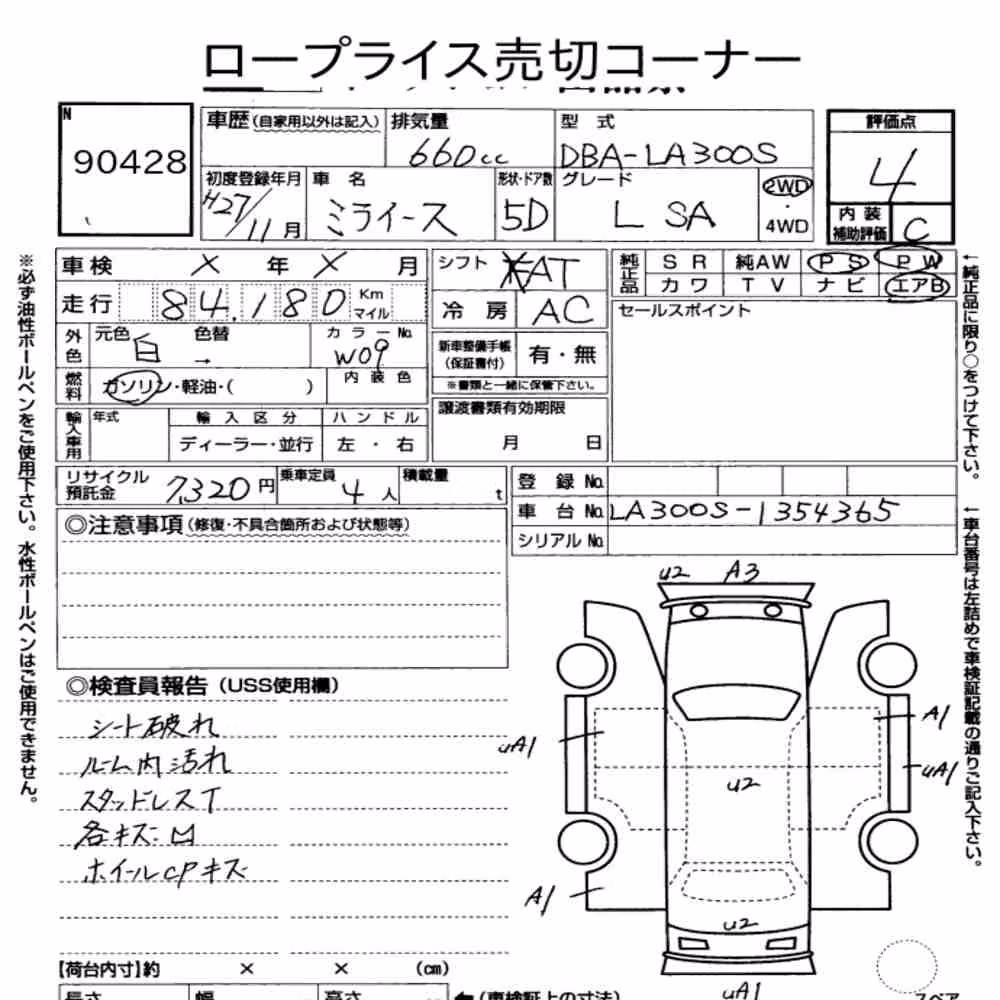 ロープライス売切コーナー
N
90428
車歴(自家用以外は記入)
排気量
660cc
型 式
DBA-LA300S
評価点
4
初度登録年月
H27/11月
車 名
ミライース
形状・ドア数
5D
グレード
L SA
2WD
・
4WD
内 装
補助評価
C
車検 X 年 X 月
シフト
AT
純正品
SR
純AW
PS
PW
カワ
TV
ナビ
エアB
走行
84,180
Km
マイル
冷 房
AC
セールスポイント
外色
元色
白
色替
→
カラーNo.
W09
新車整備手帳
(保証書付)
有・無
※書類と一緒に保管下さい。
燃料
ガソリン・軽油・( )
内 装 色
譲渡書類有効期限
月 日
輸入車用
年式
輸 入 区 分
ハ ン ド ル
ディーラー・並行
左 ・ 右
リサイクル
預託金
7,320円
乗車定員
4人
積載量
t
登 録 No.
車 台 No.
LA300S-1354365
シリアル No.
◎注意事項(修復・不具合箇所および状態等)
◎検査員報告(USS使用欄)
シート破れ
ルーム内汚れ
スタッドレスT
各キズ凹
ホイールCPキズ
U2 A3
A1
uA1
uA1
U2
A1
U2
uA1
【荷台内寸】約 × × (cm)
長さ
幅
高さ
←(車検証上の寸法)
スペア
※必ず油性ボールペンをご使用下さい。水性ボールペンはご使用できません。
←純正品に限り○をつけて下さい。
←車台番号は左詰めで車検証記載の通りご記入下さい。